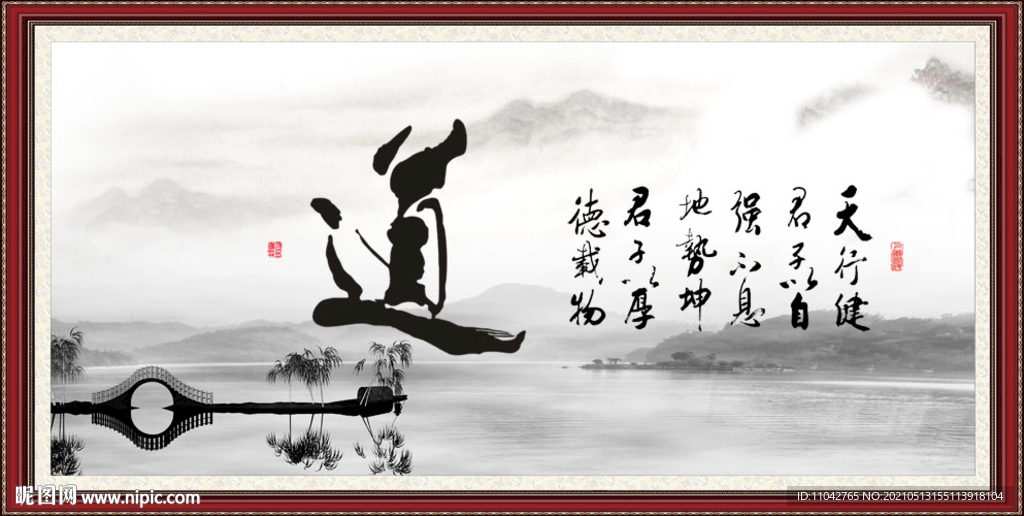 道
天行健
君子以自
强不息
地势坤
君子以厚
德载物
昵图网 www.nipic.com
ID:11042765 NO:20210513155113918104